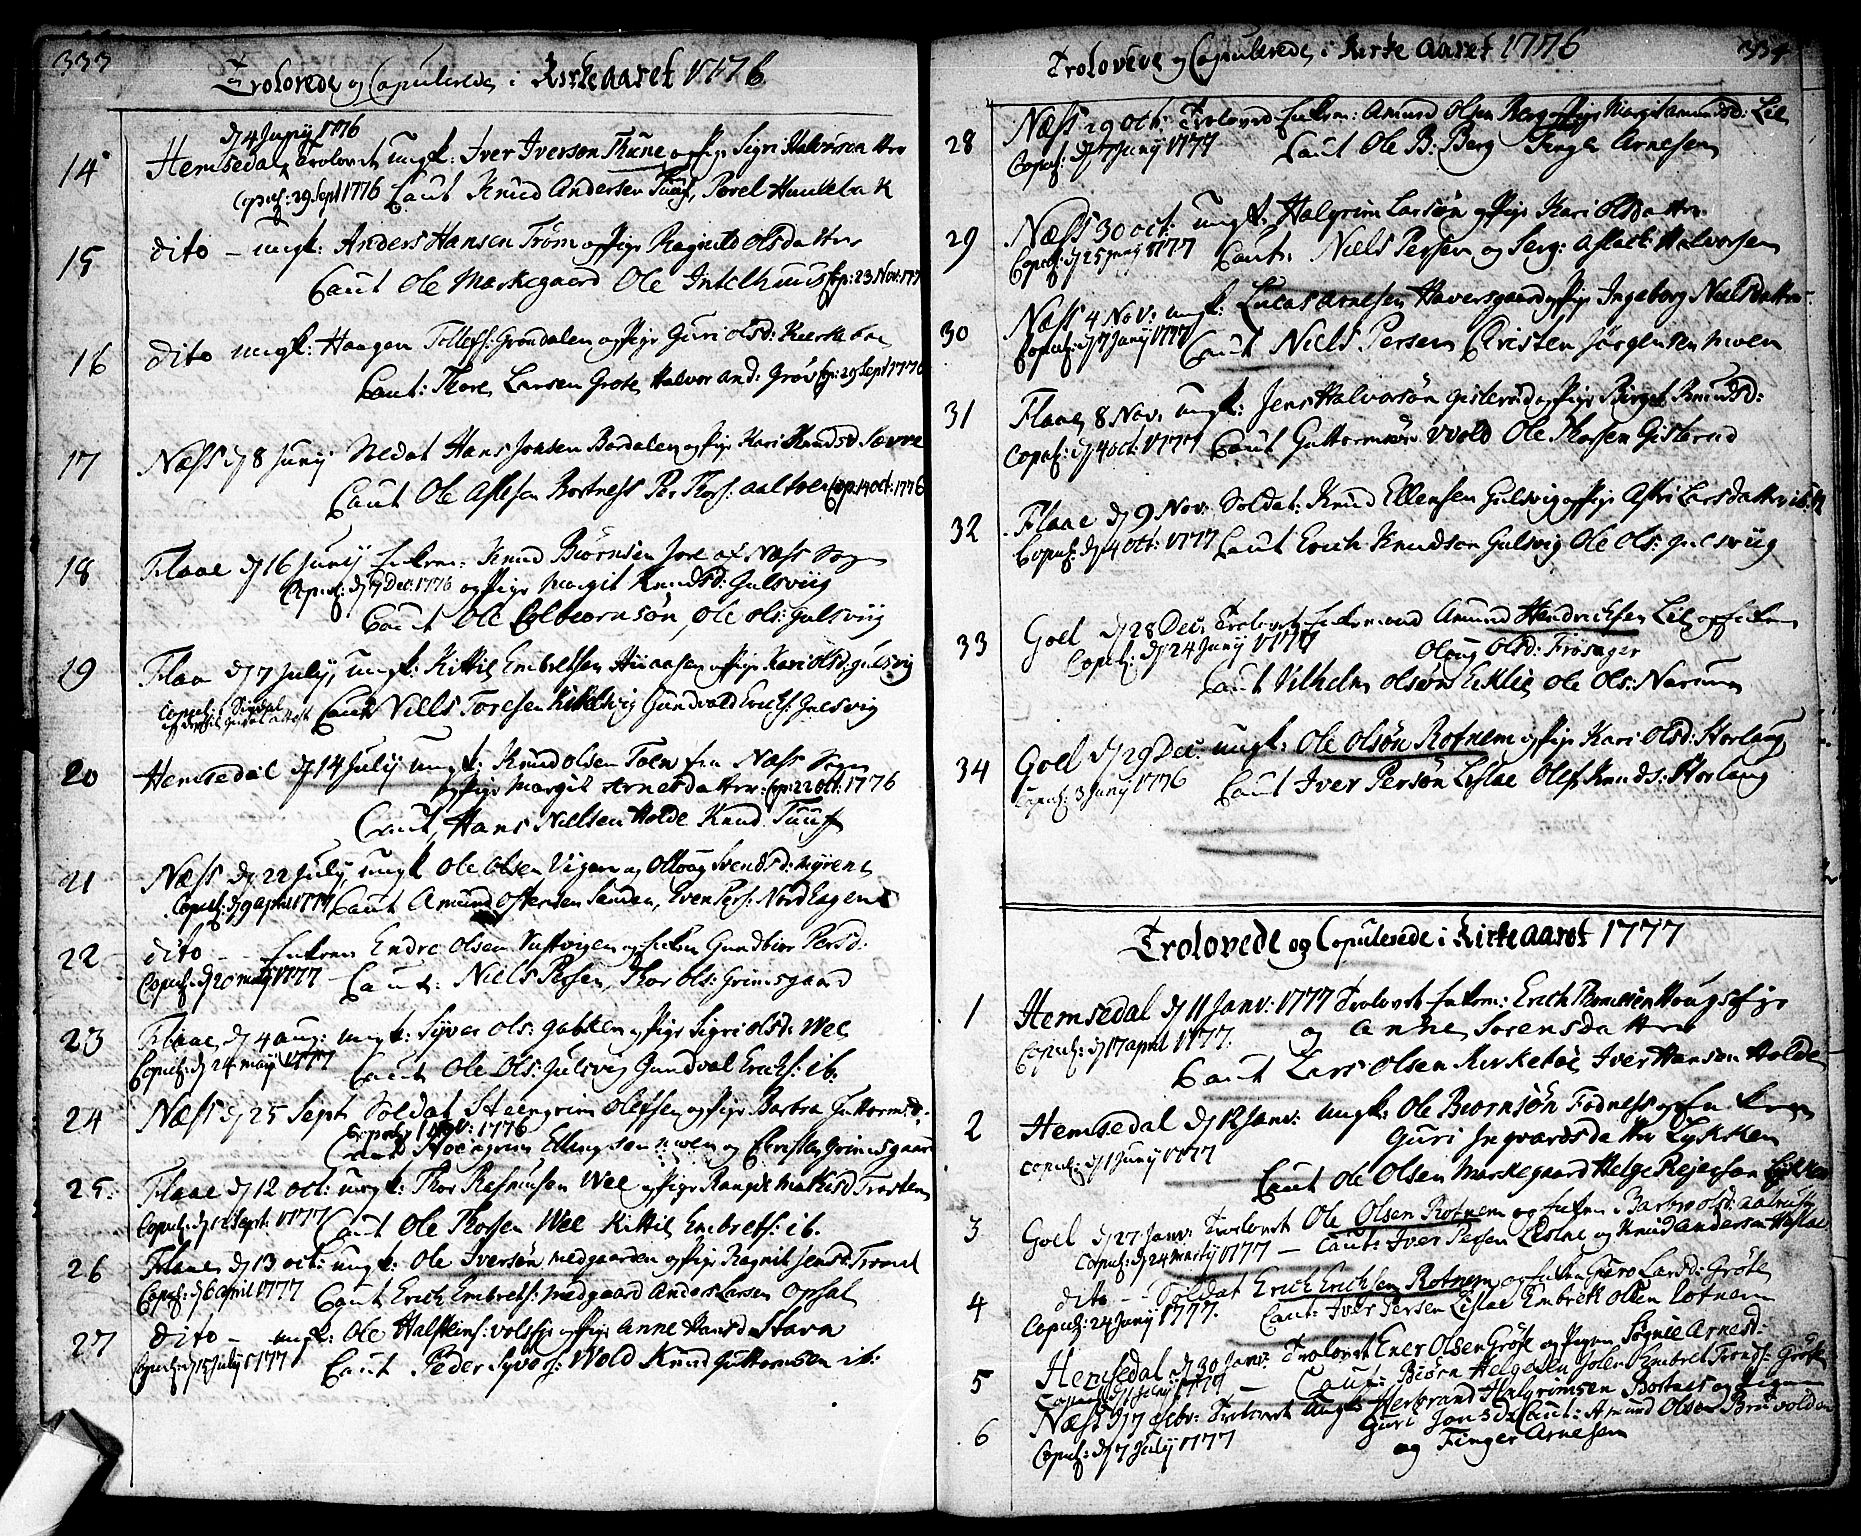 333
Trolovede og Copulerede i Kirkeaaret 1776
d 4 Junij 1776
14 Hemsedal Trolovet ungk: Iver Iverson Thune og Pige Sigri Halvorsdatter
Copul: 29 Sept 1776 Caut Knud Andersen Tuuf, Povel Hunkebæk
15 dito – ungk: Anders Hansen Trøm og Pige Ragnild Olsdatter
Caut Ole Markegaard Ole Intelhuus Cop: 23 Nov: 177
16 dito ungk: Haagen Tollefs: Grøndalen og Pige Guri Olsd: Kirkebøe
Caut: Thore Larsen Grøte, Halvor And: Grøv Cop: 29 Sept 1776
17 Næss d 8 Junij Nedat Hans Jonsen Bardalen og Pige Kari Knudsd Sævre
Caut Ole Aslesen Bortness Per Thors: Aaltven Cop: 14 Oct: 1776
18 Flaae d 16 Junij Enkem: Knud Biørnsen Jore af Næss Sogn
Copul: d 9 Dec 1776 og Pige Margit Knudsd: Gulsviig
Caut Ole Colbiørnsøn, Ole Ols: Gulsviig
19 Flaa d 7 July, ungk: Kittil Embretsen og Pige Kari Olsd: Gulsvig
Copul: Sigdal
Caut Niels Toresen Gundvald Erichs: Gulsvig
20 Hemsedal d 14 July ungk: Knud Olsen Toen fra Næss Sogn
og Pige Margit Arnesdatter: Cop: 22 Oct: 1776
Caut, Hans Nielsen Holde Knud Tuuf
21 Næss d 22 July, ungk Ole Olsen Vigen og Olloug Svendsd: Myrene
Copul: d 9 April 1777 Caut Amund Ostensen Sanden, Even Pers: Nordhagen
22 dito – – Enkem Endre Olsen og Enken Gundbior Persd:
Copul: d 20 May 1777 – Caut: Niels Persen, Thor Ols: Grimsgaard
23 Flaae, d 4 Aug: ungk: Syver Ols: Gabken og Pige Sigri Olsd: Wee
Copul: d 24 May 1777 Caut Ole Ols: Gulsvig Gundval Erichs: ib:
24 Næss d 25 Sept Soldat Steengrim Olefsen og Pige Barbra Guttormsd:
Copul: 1 Nov: 1776
Caut Hoegrim Ellingson og Christen Grimsgaard
25 Flaae d 12 Oct: ungk: Thor Rasmuson Wee og Pige Rangdi Mathisd Trosten
Copul: d 12 Sept: 1777 Caut Ole Thorsen Wee Kittil Embrets: ib.
26 Flaae, d 13 Oct: ungk: Ole Iversøn Medgaarden og Pige Ragnil Jensd: Trond
Copul: d 6 April 1777 Caut Erich Embrets: Medgaard Anders Larsen Opsal
27 dito – ungk: Ole Halsteins: og Pige Anne Hansd Stavn
Copul: d 15 July 1777 Caut Peder Syvers: Wold Knud Guttormsen ib:
334
Trolovede og Copulerede i Kirke Aaret 1776
28 Næss 29 Oct: Troloved Enkem: Amund Olsen Berg og Pige Margit Amundsd: Lie
Copul: d 7 Junij 1777 Caut Ole B: Berg Finger Arnesen
29 Næss 30 Oct: ungk: Halgrim Larsøn og Pige Kari Olsdatter
Copul: d 25 Junij 1777 Caut: Niels Persen og Serg: Aslack Halvorsen
30 Næss 4 Nov: ungk: Lucas Arnesen Haversgaard og Pige Ingeborg Nielsdatter
Copul: d 7 Junij 1777 Caut Niels Persen Christen Jørgensen Moen
31 Flaae, 8 Nov: ungk: Jens Halvorsøn Gislerud og Pige Birgit Knudsd:
Copul: d 4 Oct: 1777 Caut Guttormsøn Wold Ole Thorsen Gislerud
32 Flaae d 9 Nov: Soldat: Knud Ellensen Gulsvig og Pige Astri Larsdatter
Copul: d 4 Oct: 1777 Caut Erich Knudson Gulsvig Ole Ols: Gulsviig
33 Goel d 28 Dec: Trolovet Enkemand Amund Hendrichsen Lie og Enken
Copul: d 24 Junij 1777 Oloug Olsd: Frøsager
Caut Vilhelm Olsøn Eklie Ole Ols: Narum
34 Goel d 29 Dec: ungk: Ole Olsøn Rotnem og Pige Kari Olsd: Storlaug
Copul: 3 Junij 1776 Caut Iver Persøn Lislae Olef Knuds: Storlaug
Trolovede og Copulerede i Kirkeaaret 1777
1 Hemsedal d 11 Janv: 1777 Trolovet Enkem: Erich Thomesen Hougsøge
Copul: d 17 April 1777. og Anne Sorensdatter
Caut Lars Olsen Kirkebøe Iver Hanson Holde
2 Hemsedal d 12 Janv: ungk: Ole Biørnsøn Fodness og Enken
Guri Ingvardsdatter Lykken
Copul: d 1 Junij 1777
Caut Ole Olsen Markegaard Helge Rejerson Lykken
3 Goel d 27 Janv: Trolovet Ole Olsen Rotnem og Enken Barbro Olsd: Aalrust
Copul: d 24 Martij 1777 – Caut: Iver Persen Lislae og Knud Andersen Haslae
4 dito – – Soldat Erich Erichsen Rotnem og Enken Guro Larsd: Grøte
Copul: 24 Junij 1777. Caut: Iver Persen Lislae Embrik Olsen Rotnem
5 Hemsedal d 30 Janv: Trolovet Ener Olsen Grøte og Pigen Søgnie Arnesd:
Copul: d 1 July 1777 – Caut: Biørn Helgesen Embret Tronds: Grøte
6 Næss d 7 Febr: Trolovet ungk Herbrand Halgrimsen Bortnes og Pigen
Guri Jonsd: Caut: Amund Olsen Bruvolden
Copul: d 7 July 1777 og Finger Arnesen